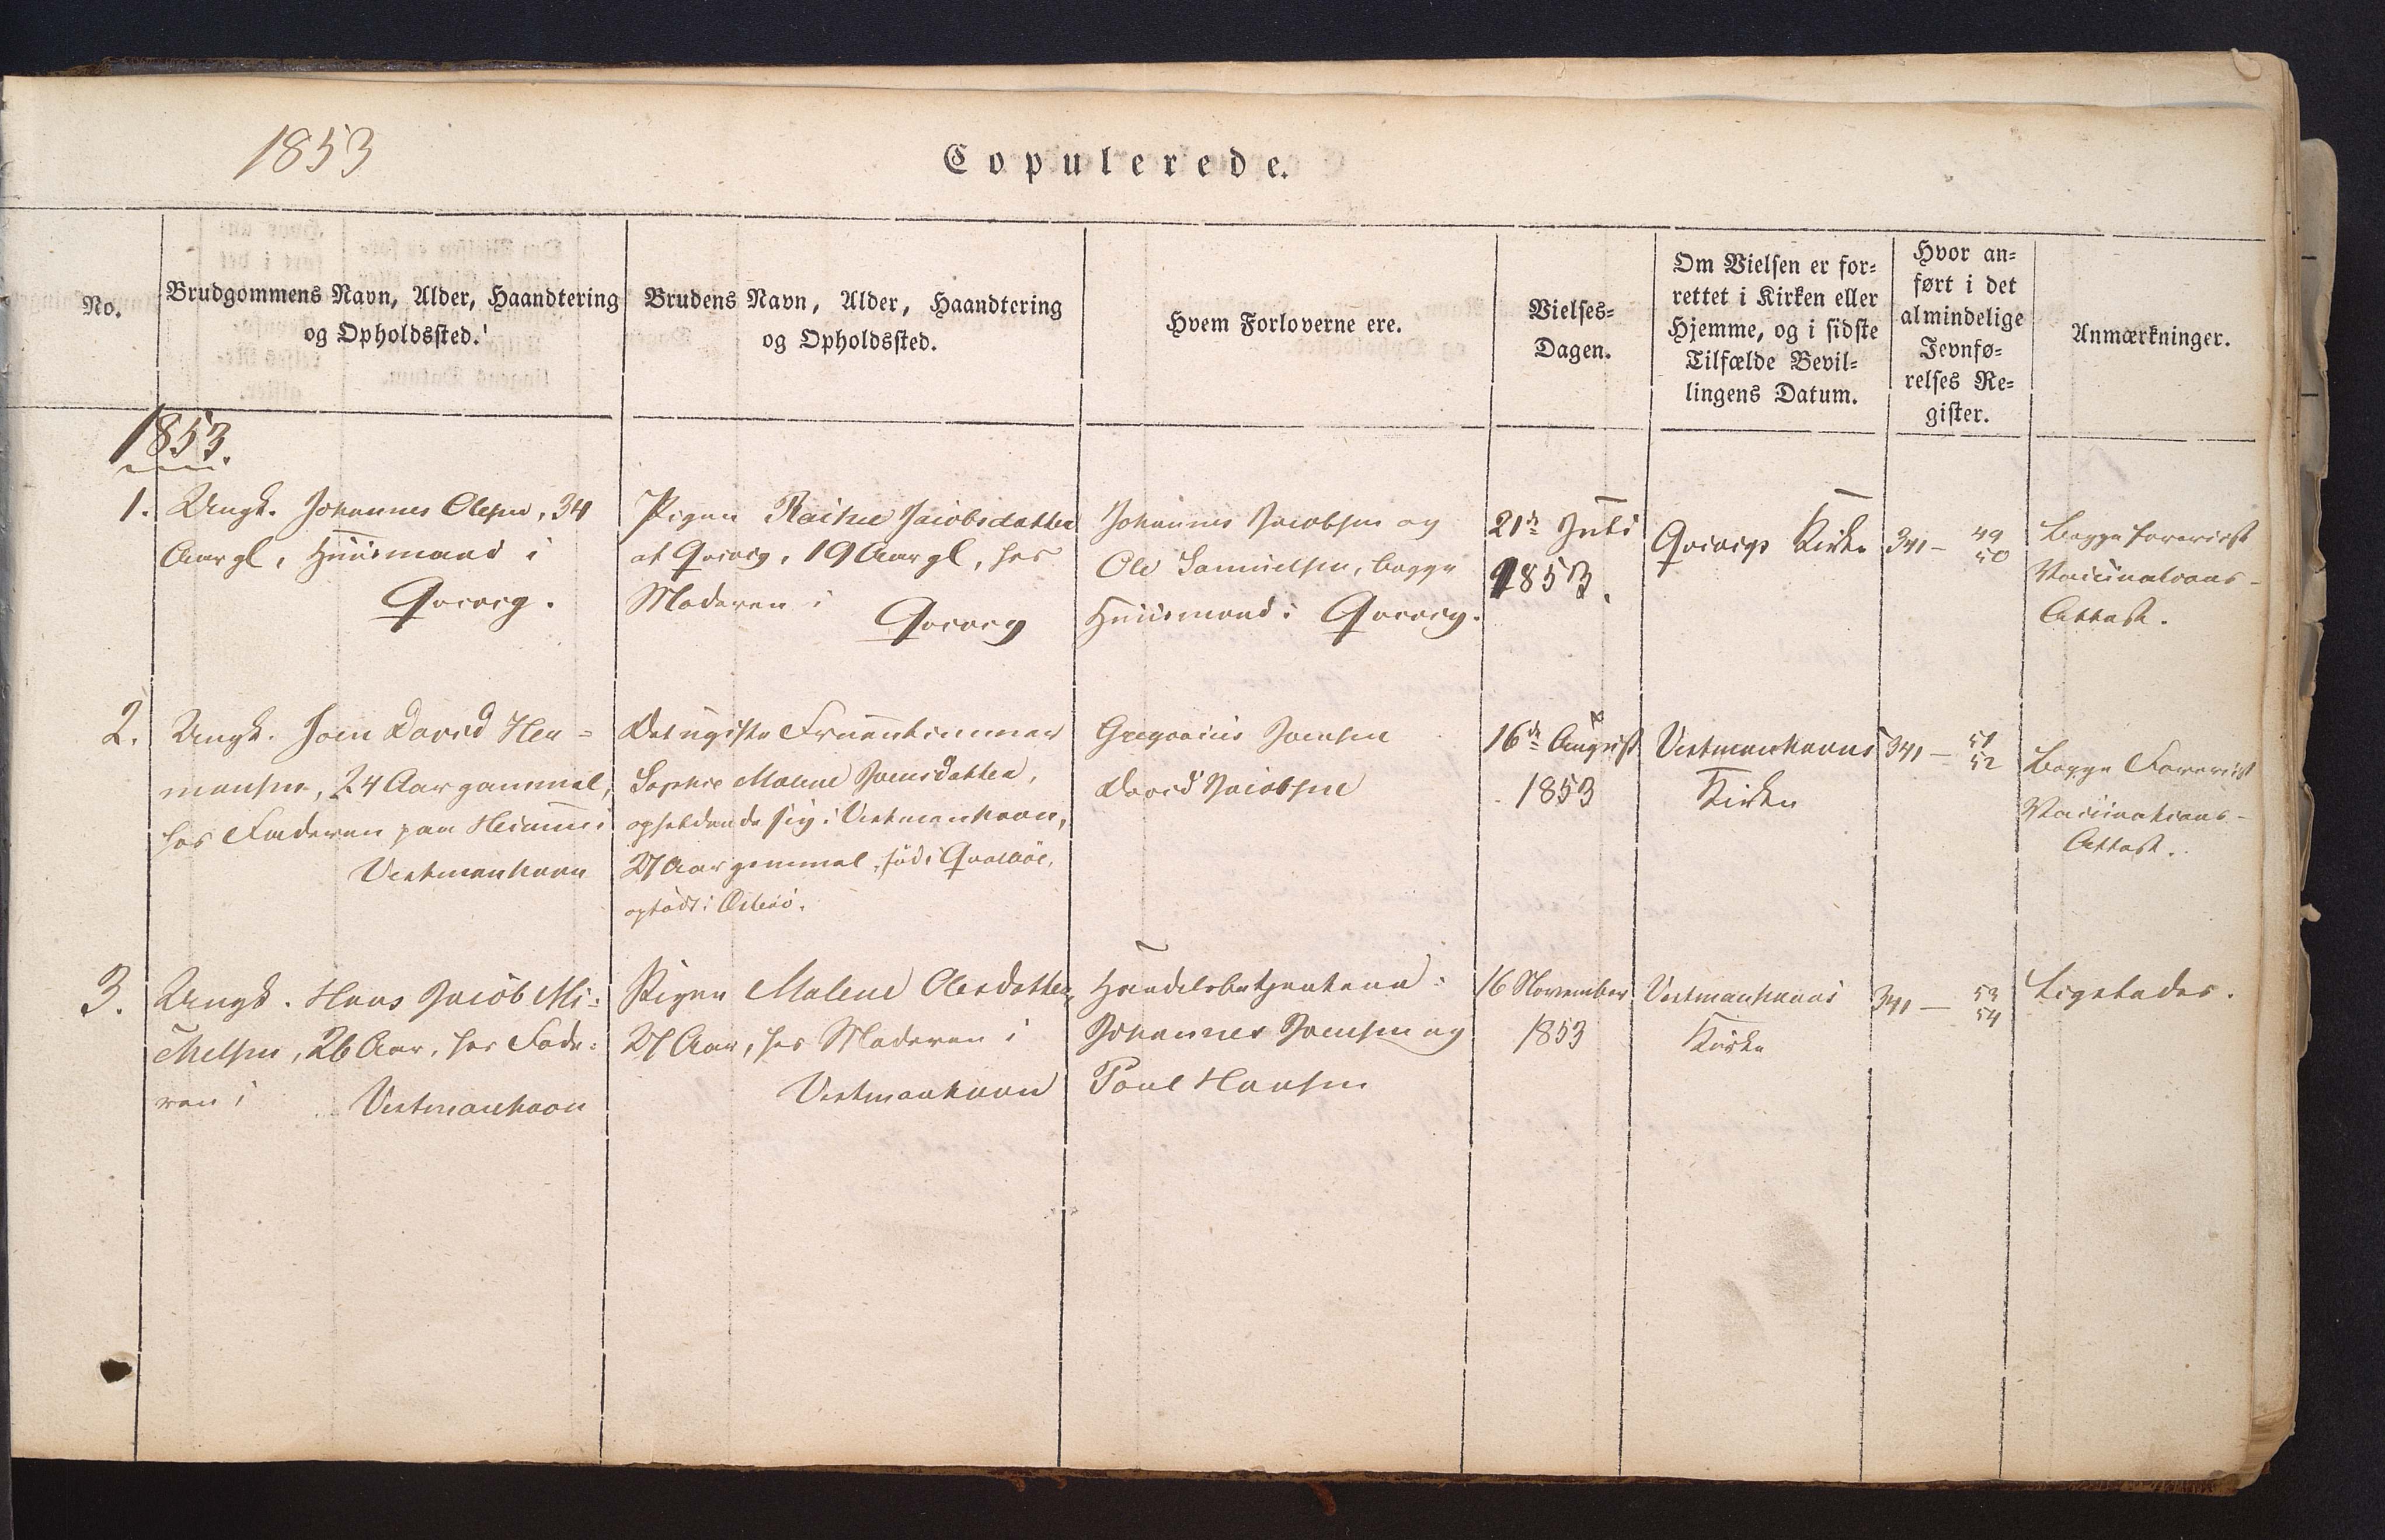 1853
Copulerede.
No.
Brudgommens Navn, Alder, Haandtering
og Opholdssted.
Brudens Navn, Alder, Haandtering
og Opholdssted.
Hvem Forloverne ere.
Vielses=
Dagen.
Om Vielsen er for=
rettet i Kirken eller
Hjemme, og i sidste
Tilfælde Bevil=
lingens Datum.
Hvor an=
ført i det
almindelige
Jevnfø=
relses Re=
gister.
Anmærkninger.
1853.
1.
Ungk. Johannes Olesen, 34
Aar gl, Huusmand i
Qvivig.
Pigen Jacobsdatter
af Qvivig, 19 Aar gl, hos
Moderen i
Qvivig
Johannes Jacobsen og
Ole Samuelsen, begge
Huusmænd i Qvivig.
21de Juli
1853.
Qvivigs Kirke
341 - 49
50
Begge foreviist
Vaccinations-
Attest.
2.
Ungk. Joen David Her=
mansen, 24 Aar gammel,
hos Faderen paa
Vestmanhavn
Det ugifte Fruentimmer
Sophie Malene Joensdatter,
opholdende sig i Vestmanhavn,
27 Aar gammel, fød i Qvalbøe,
opfødt i Østerø.
Gregorius Joensen
David Jacobsen
16de August
1853
Vestmanhavns
Kirke
341 - 51
52
Begge Foreviist
Vaccinations-
Attest.
3.
Ungk. Hans Jacob Mi=
chelsen, 26 Aar, hos Fade=
ren i Vestmanhavn
Pigen Malene Olesdatter,
27 Aar, hos Moderen i
Vestmanhavn
Handelsbetjenterne:
Johannes Joensen og
Poul Hansen
16 November
1853
Vestmanhavns
Kirke
341 - 53
54
Ligeledes.